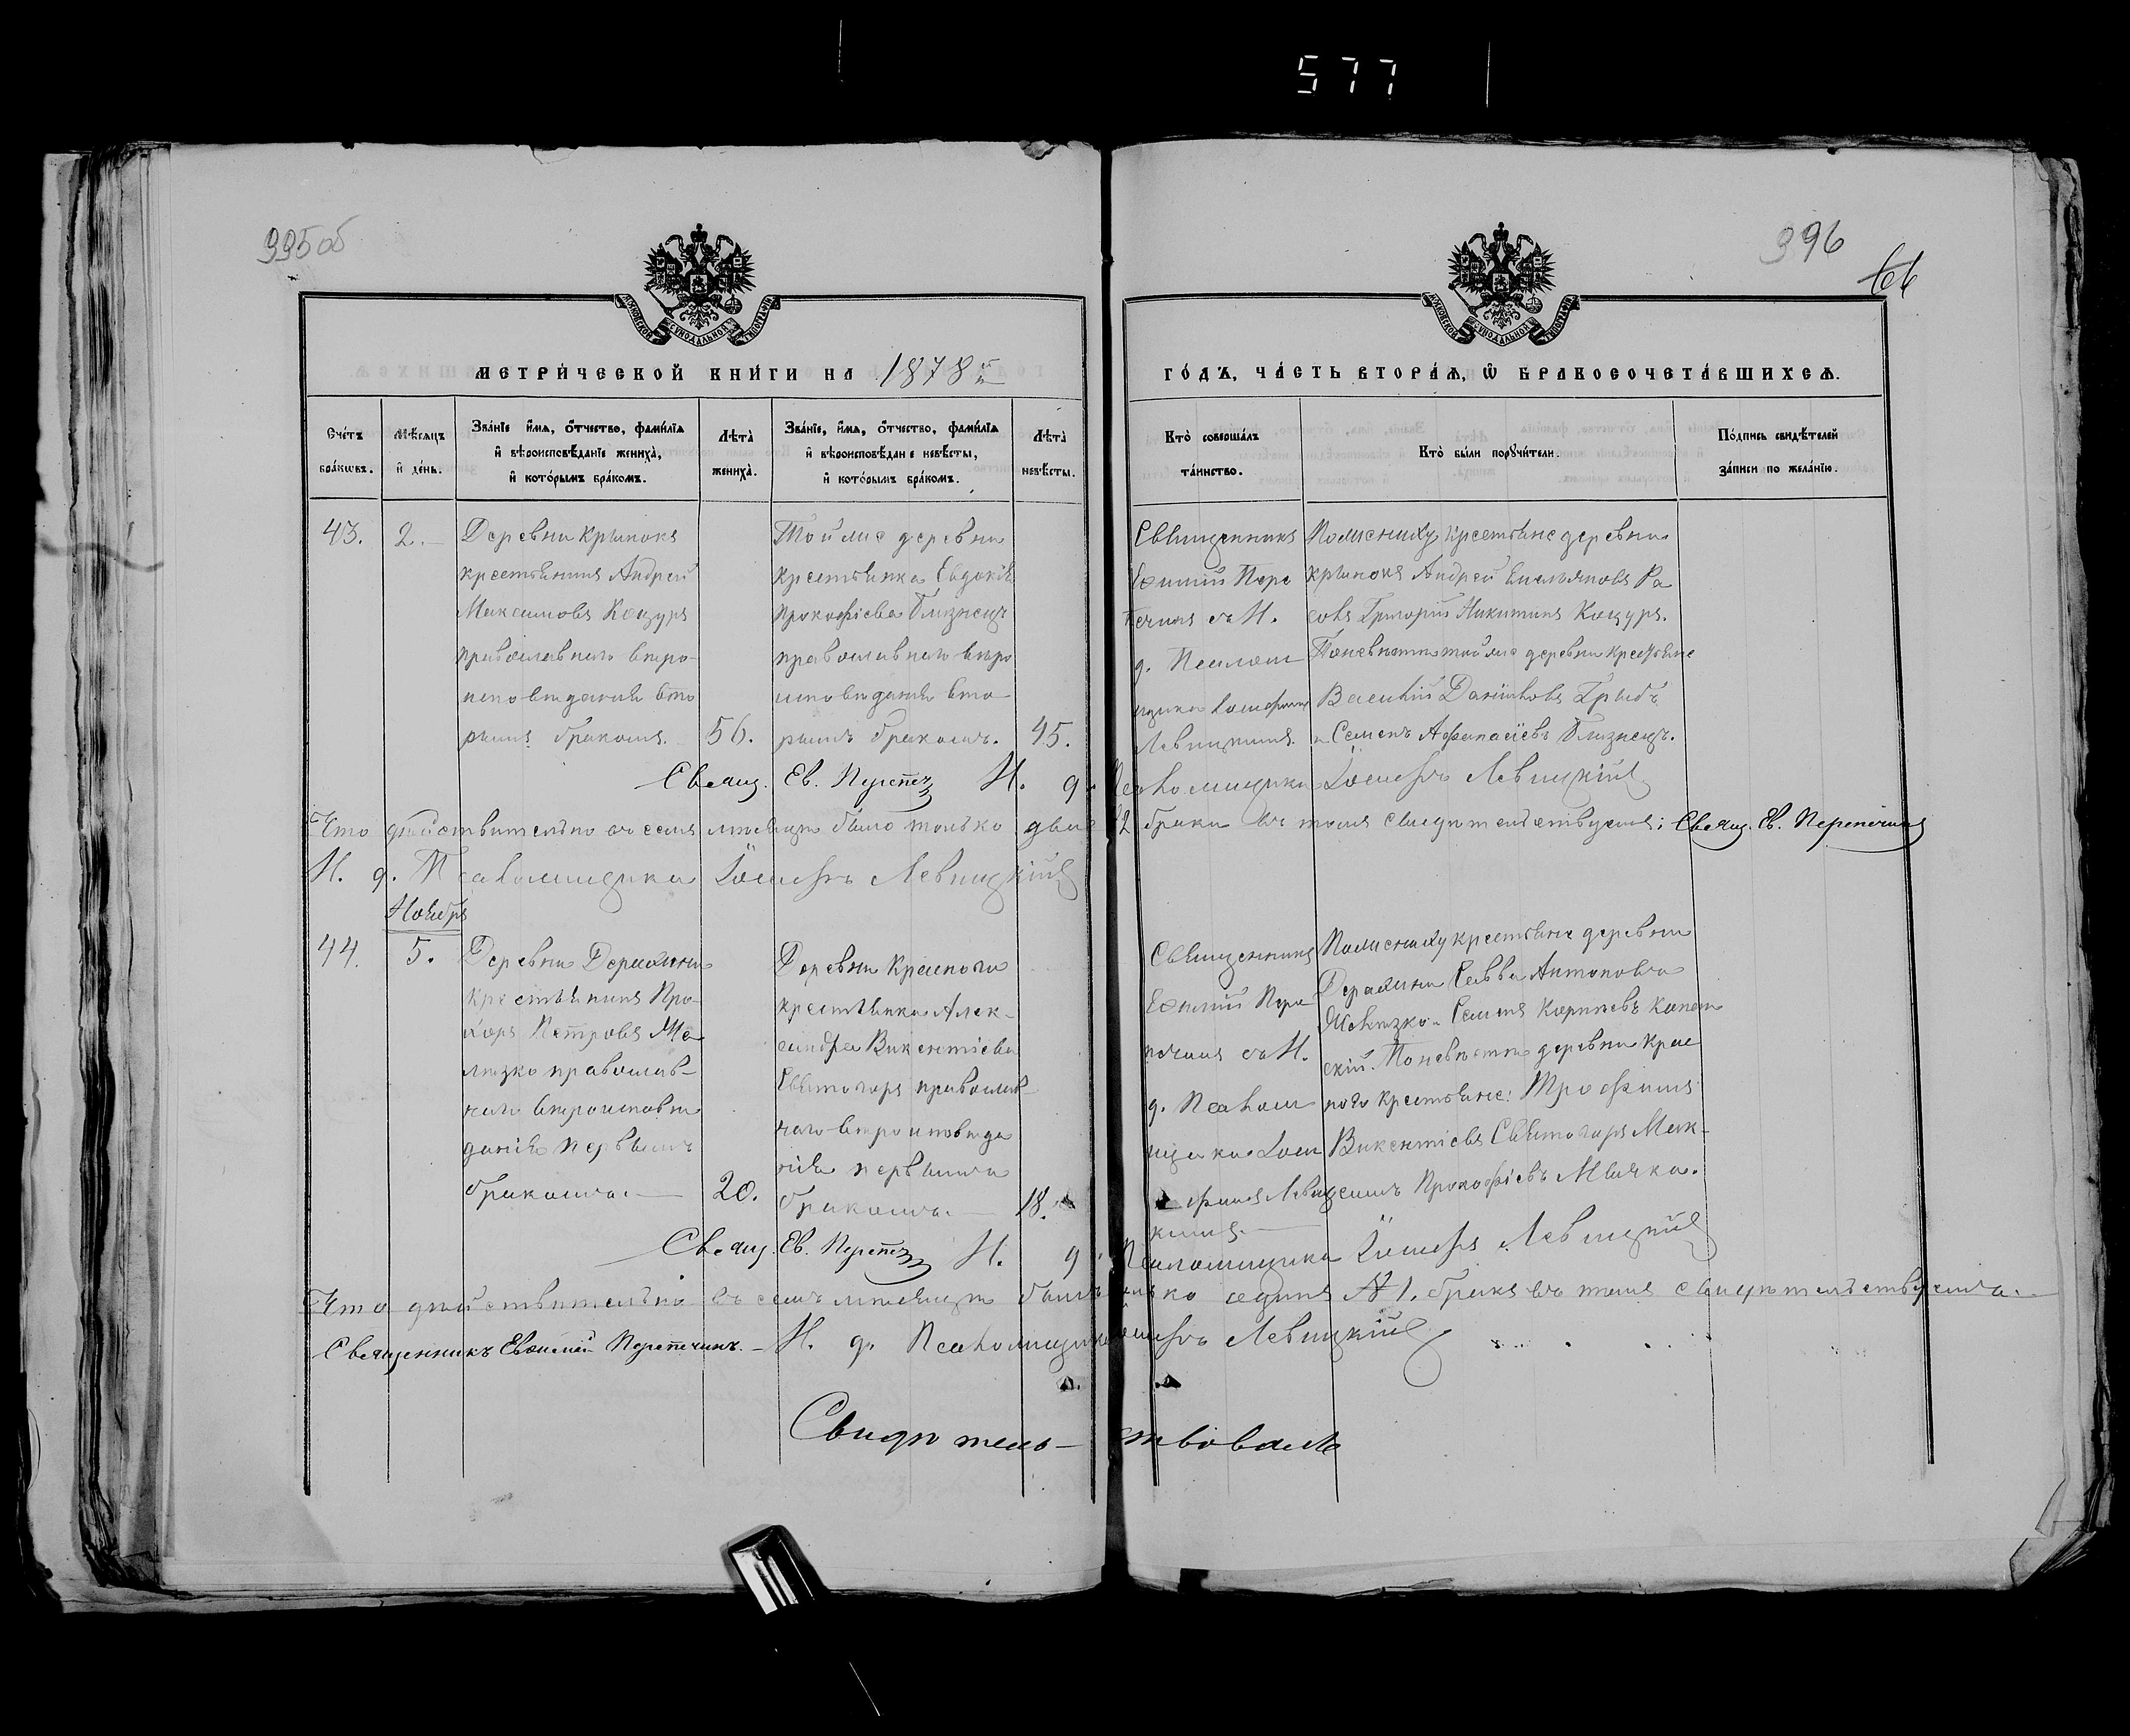 577
395об
396
66
МОСКОВСКОЙ СѴНОДАЛЬНОЙ ТИПОГРАФІИ
МОСКОВСКОЙ СѴНОДАЛЬНОЙ ТИПОГРАФІИ
МЕТРИ́ЧЕСКОЙ КНИ́ГИ НА 1878й
ГО́ДЪ, ЧА́СТЬ ВТОРА́Ѧ, Ѿ БРАКОСОЧЕТА́ВШИХСѦ.
Сче́тъ бра́кѡвъ.
Мѣ́сяцъ и҆ де́нь.
Зва́нїе и҆́мѧ, ѻ҆́тчество, фами́лїѧ
и҆ вѣроисповѣ́данїе жениха̀,
и҆ кото́рымъ бра́комъ.
Лѣ́та̀
жениха̀.
Зва́нїе, и҆́мѧ, ѻ҆́тчество, фами́лїѧ
и҆ вѣроисповѣ́данїе невѣ́сты,
и҆ кото́рымъ бра́комъ.
Лѣ́та̀
невѣ́сты.
Кто̀ соверша́лъ
та́инство.
Кто̀ бы́ли порꙋчи́тели.
По́дпись свидѣ́телей
за́писи по жела́нїю.
43.
2.
Деревни Крынокъ
крестьянинъ Андрей
Максимовъ Коцуръ
православнаго вѣро-
исповѣданія вто
рымъ бракомъ.
56.
Той же деревни
крестьянка Евдокія
Прокофіева Близнецъ
православнаго вѣро
исповѣданія вто-
рымъ бракомъ.
45.
Священникъ
Евѳимій Пере
печинъ съ И.
д. Псалом
щика Іосифомъ
Левицкимъ.
По жениху крестьяне деревни
Крынокъ Андрей Емельяновъ Ра
совъ Григорій Никитинъ Коцуръ.
По невѣстѣ той же деревни крестьяне
Василій Даніиловъ Грибъ
и Семенъ Афанасіевъ Близнецъ.
Свящ. Ев. Перепеч И. д. Псаломщика Іосифъ Левицкій
Что дѣйствительно въ семъ мѣсяцѣ было только два 2 брака въ томъ свидѣтельствуемъ: Свящ. Ев. Перепечинъ
И. д. Псаломщика Іосифъ Левицкій
Ноября
44.
5.
Деревни
крестьянинъ Про-
хоръ Петровъ Же
лѣзко православ-
наго вѣроисповѣ
данія первымъ
бракомъ.
20.
Деревни Краснога
крестьянка Алек-
сандра Викентіева
Святогоръ православ-
наго вѣроисповѣда
нія первымъ
бракомъ.
18.
Священникъ
Евѳимій Пере
печинъ съ И.
д. Псалом
щика Іоси
фомъ Левиц
кимъ.
По жениху крестьяне деревни
Савва Антоновъ
Желѣзко и Семенъ
скій. По невѣстѣ деревни Крас
ного крестьяне: Трофимъ
Викентіевъ Святогоръ Мак-
симъ Прокофіевъ Мячка.
Свящ. Ев. Перепеч И. д. Псаломщика Іосифъ Левицкій
Что дѣйствительно въ семъ мѣсяцѣ былъ только одинъ № 1. бракъ въ томъ свидѣтельствуемъ.
Священникъ Евѳимій Перепечинъ. И. д. Псаломщика Іосифъ Левицкій
Свидѣтель- ствовалъ